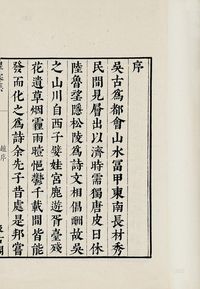 序
吳古爲都會山水冨甲東南長材秀
民間見曾出以濟時需獨唐皮日休
陸魯望隱松陵爲詩文相倡酬故吳
之山川自西子嬖娃宮鹿遊胥臺殘
花遺草烟霾雨曀悒鬱千載間皆能
發而化之爲詩余先子昔處是邦嘗